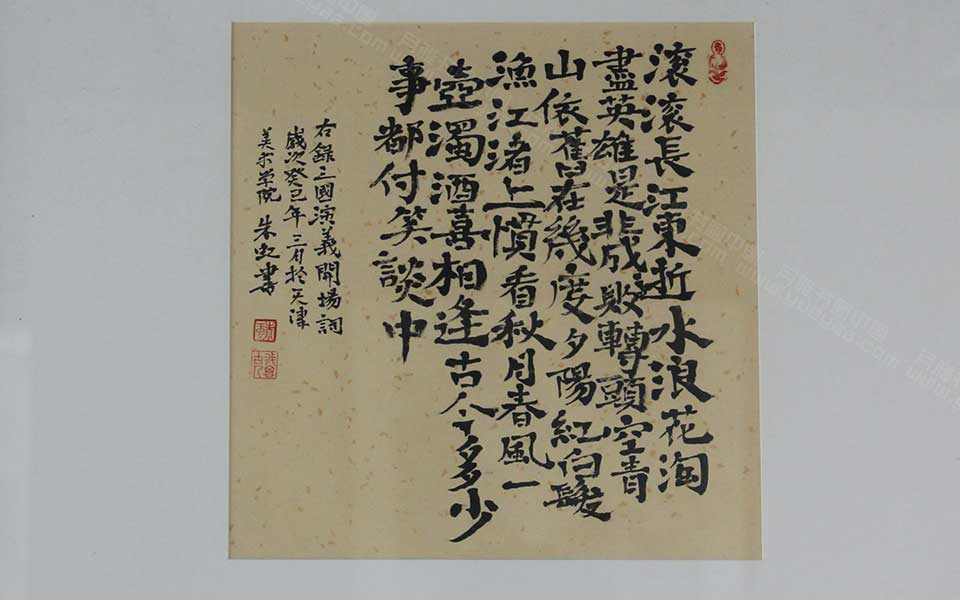 滚滚長江東逝水浪花淘
盡英雄是非成敗轉頭空青
山依舊在幾度夕陽紅白髮
漁江渚上慣看秋月春風一
壺濁酒喜相逢古今多少
事都付笑談中
右錄三國演義開場詞
歲次癸巳年三月於天津
美术学院 朱 書